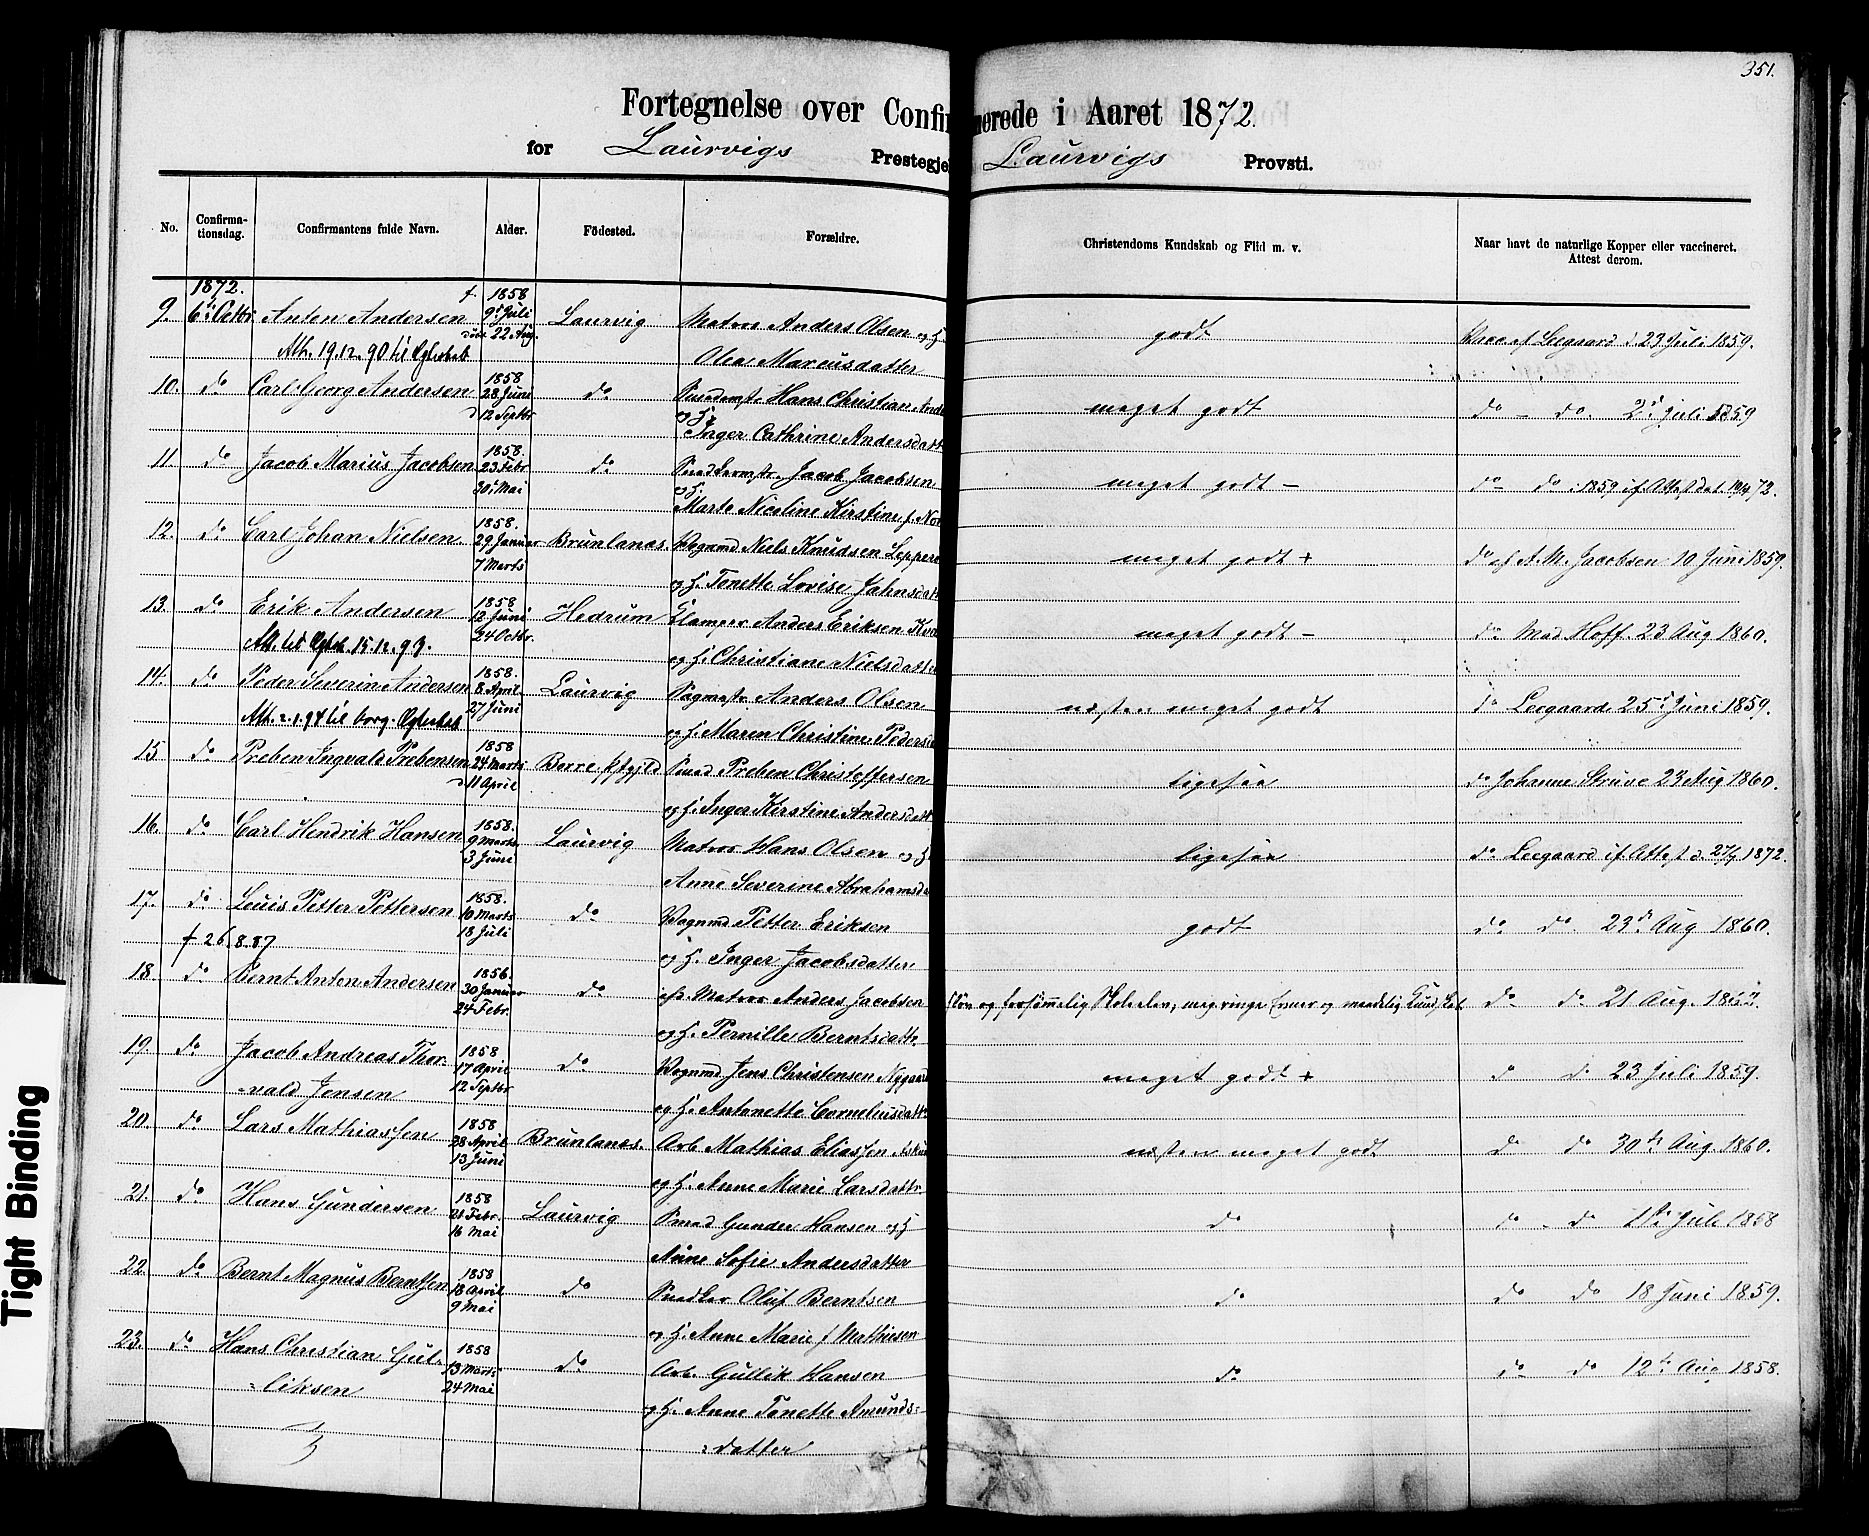 351.
Fortegnelse over Confir merede i Aaret 1872.
for Laurvigs Prestegje Laurvigs Provsti.
No. Confirma-tionsdag. Confirmantens fulde Navn. Alder. Födested. Forældre. Christendoms Kundskab og Flid m. v. Naar havt de naturlige Kopper eller vaccineret. Attest derom.
1872. f. 1858
9. 6te Octbr. Anton Andersen 9de Juli Laurvig Matros Anders Olsen og H. godt Vacc. af Leegaard d. 23 Juli 1859.
døbt 22 Aug.
Att. 19.12.90 til Ægteskab Olea Marcusdatter
10. do Carl Georg Andersen 1858 28 Juni do Hans Christian meget godt do - do. 2d Juli 1859
d 12 Septbr og H. Inger Cathrine Andersdatt
11. do Jacob Marius Jacobsen 1858. 23 Febr do Jacob Jacobsen meget godt - do - do. 1859 if. Attest dat.
30 Mai og H. Marte Nicoline Kirstine f.
12. do Carl Johan Nielsen 1858. 29 Januar Brunlanæs Vognmd Niels Knudsen meget godt + do af A. M. Jacobsen 10 Juni 1859.
7 Marts og H. Tonette Lovise Jahnsdatt
13. do Erik Andersen 1858 12 Juni Hedrum Anders Eriksen meget godt - do Mad. Hoff. 23 Aug 1860.
24 Octbr.
Att. til Ægtesk. 15.12.93. og H. Christiane Nielsdatte
14. do Peder Severin Andersen 1858. 8 April Laurvig Anders Olsen næsten meget godt do Leegaard 25de Juni 1859.
27 Juni
til borg. Ægteskab og H. Maren Christine Peders
15 do Preben Ingvald Prebensen 1858 24 Marts Borre Prstgjld Smed Preben Christoffersen ligesaa do Johanne Struve 23 Aug 1860.
d 11 April og H. Inger Kirstine Andersdatt
16. do Carl Hendrik Hansen 1858. 9 Marts Laurvig Matros Hans Olsen og H. ligesaa do Leegaard if. Attest d. 27/9 1872.
3 Juni Anne Severine Abrahamsd
17. do Louis Petter Pettersen 1858. 10 Marts do Vognmd Petter Eriksen godt do do. 23d Aug 1860.
18 Juli
† 26.8.87 og H. Inger Jacobsdatter
18. do Bernt Anton Andersen 1856. 30 Januar do Matros Anders Jacobsen og forsömmelig Skoleelev, meg. ringe Evner og maadelig Kundskab do do 21 Aug.
24 Febr. og H. Pernille Berntsdatt.
19. do Jacob Andreas Thor- 1858 17 April do Vognmd Jens Christensen Nygaard meget godt + do do 23 Juli 1859.
vald Jensen 12 Septbr og H. Antonette Corneliusdatt
20. do Lars Mathiassen 1858 28 April Brunlanæs. Arb. Mathias Eliassen næsten meget godt do do 30te Aug. 1860.
13 Juni og H. Anne Marie Larsdatt.
21. do Hans Gundersen 1858 21 Febr. Laurvig Smed Gunder Hansen og H do do - do Juli 1858
16 Mai Anne Sofie Andersdatter
22. do Bernt Magnus Berntsen 1858 18 April do Snedker Oluf Berntsen do do do 18 Juni 1859.
9 Mai og H. Anne Marie f. Mathiesen
23. do Hans Christian Gul- 1858 13 Marts do Arb. Gullik Hansen do do do 12te Aug 1858.
liksen 24 Mai og H. Anne Tonette Amunds-
datter
Tight Binding